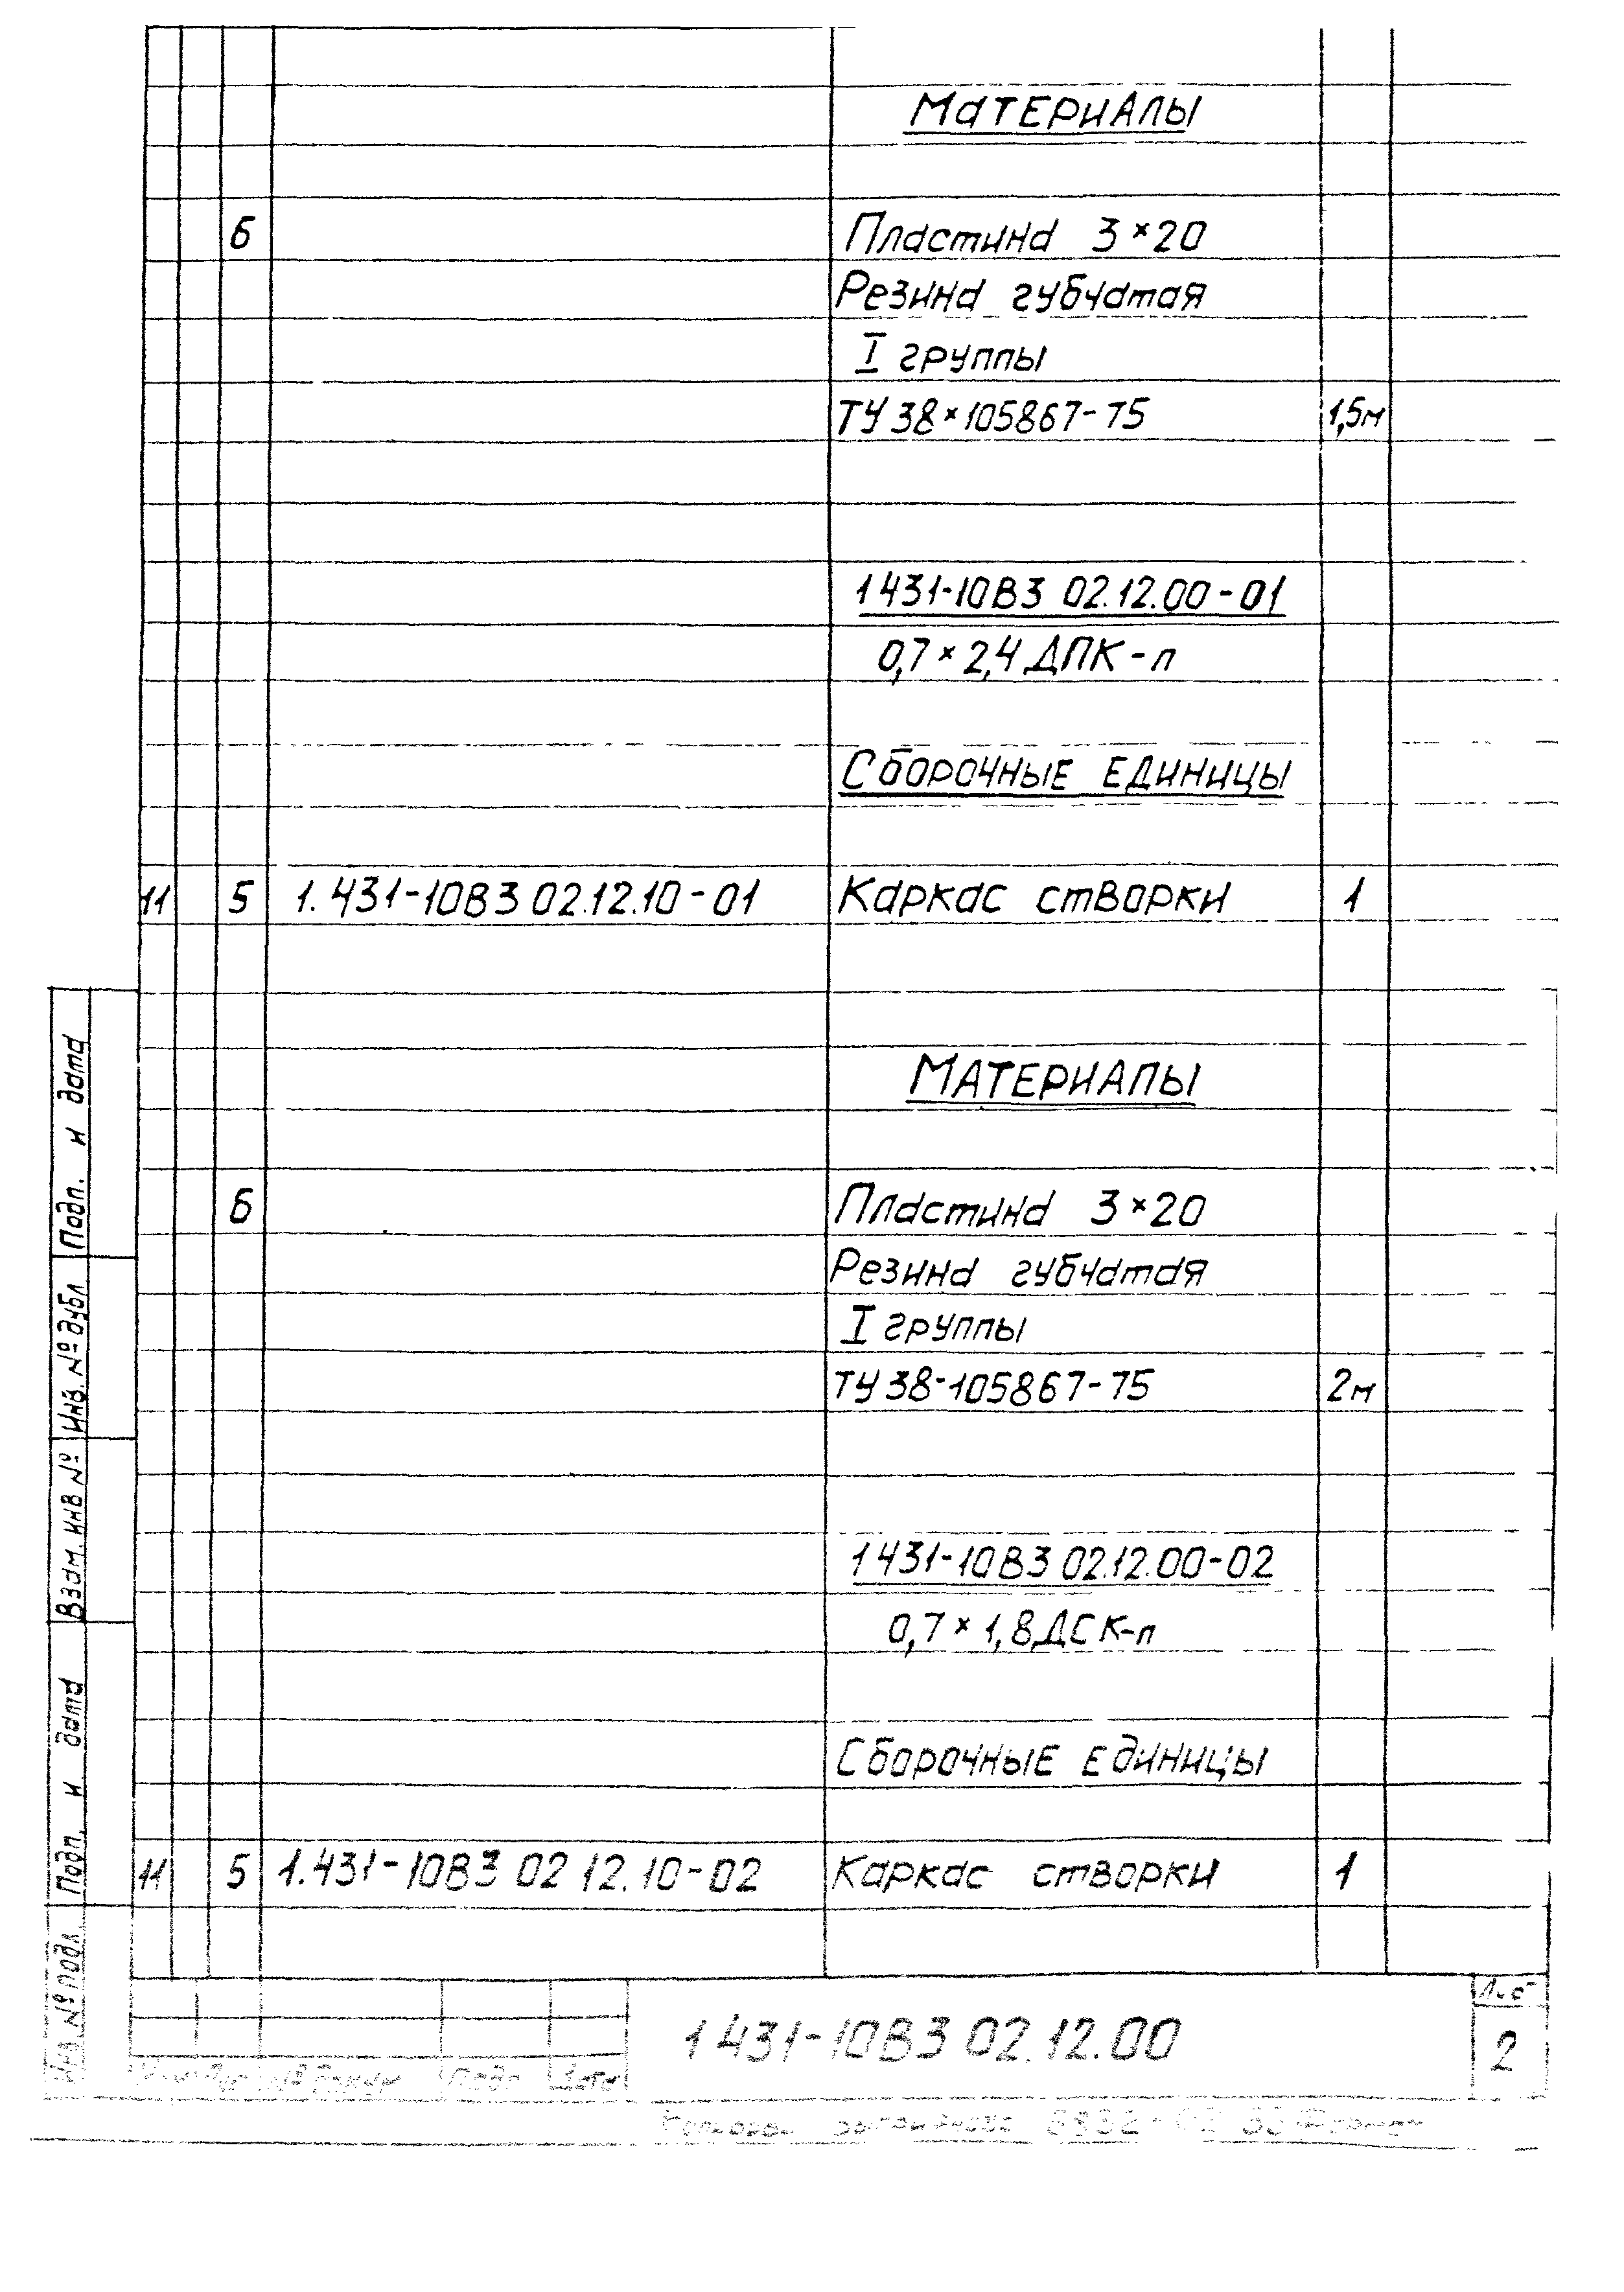 МАТЕРИАЛЫ
6 Пластина 3×20
Резина губчатая
I группы
ТУ 38×105867-75 1,5м
1 431-10В3 02.12.00-01
0,7×2,4 ДПК-п
СБОРОЧНЫЕ ЕДИНИЦЫ
11 5 1.431-10В3 02.12.10-01 Каркас створки 1
МАТЕРИАЛЫ
6 Пластина 3×20
Резина губчатая
I группы
ТУ 38-105867-75 2м
1 431-10В3 02.12.00-02
0,7×1,8 ДСК-п
СБОРОЧНЫЕ ЕДИНИЦЫ
11 5 1.431-10В3 02 12.10-02 Каркас створки 1
Подп. и дата
Инв. № дубл
Взам. инв №
Подп. и дата
Инв № подл
1 431-10В3 02.12.00
Лист
2
№ докум Подп Дата